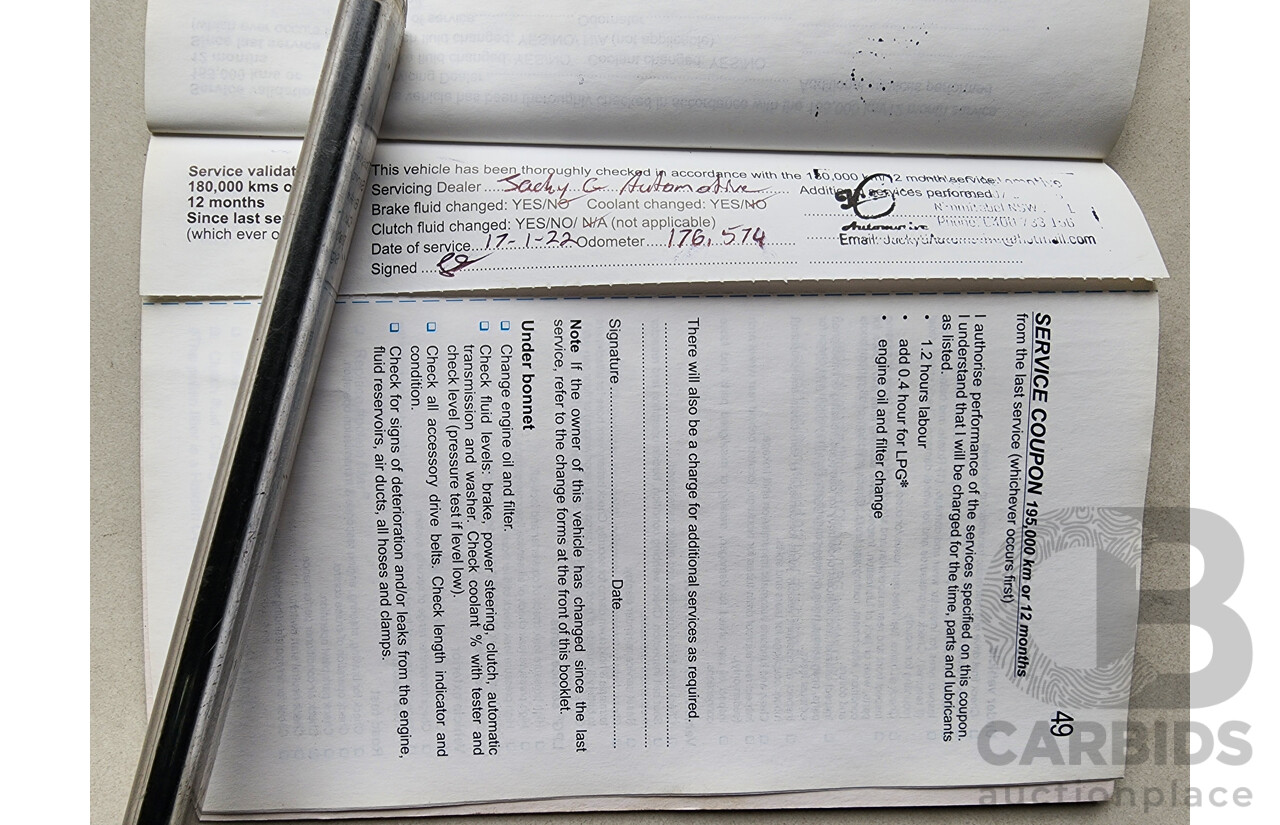 Service validat
180,000 kms o
12 months
Since last se
(which ever o
This vehicle has been thoroughly checked in accordance with the 180,000 km/12 month service.
Servicing Dealer Jacky G Automotive
services performed
Brake fluid changed: YES/NO Coolant changed: YES/NO
Clutch fluid changed: YES/NO/ N/A (not applicable)
Date of service 17-1-22 Odometer 176,574
Signed
NSW
Phone:
Email:
SERVICE COUPON 195,000 km or 12 months
49
from the last service (whichever occurs first)
I authorise performance of the services specified on this coupon.
I understand that I will be charged for the time, parts and lubricants
as listed.
• 1.2 hours labour
• add 0.4 hour for LPG*
• engine oil and filter change
There will also be a charge for additional services as required.
Signature Date
Note If the owner of this vehicle has changed since the last
service, refer to the change forms at the front of this booklet.
Under bonnet
❑ Change engine oil and filter.
❑ Check fluid levels: brake, power steering, clutch, automatic
transmission and washer. Check coolant % with tester and
check level (pressure test if level low).
❑ Check all accessory drive belts. Check length indicator and
condition.
❑ Check for signs of deterioration and/or leaks from the engine,
fluid reservoirs, air ducts, all hoses and clamps.
CARBIDS
auctionplace